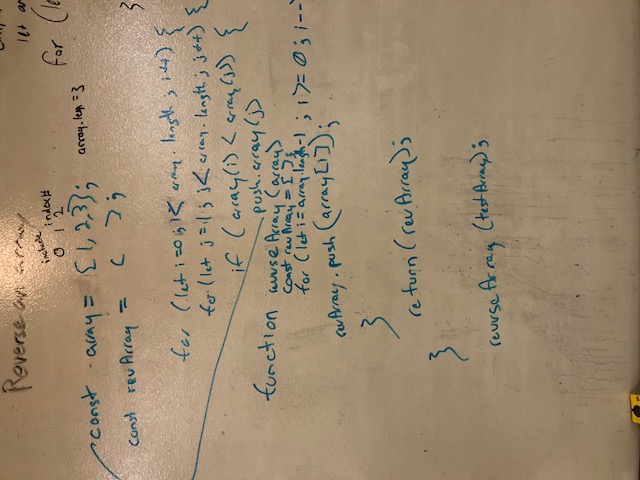 Reverse an array
include index#
0 1 2
const array = [1,2,3];
array.len = 3
const revArray = [ ];
for (let i=0; i< array.length; i++) {
for (let j=1; j< array.length; j++) {
if (array(i) < array(j)) {
push.array(j)
function reverseArray (array)
const revArray = [ ];
for (let i = array.length-1; i>=0; i--
revArray.push (array[i]);
}
return (revArray);
}
reverseArray (testArray);
let ar
for (le
}